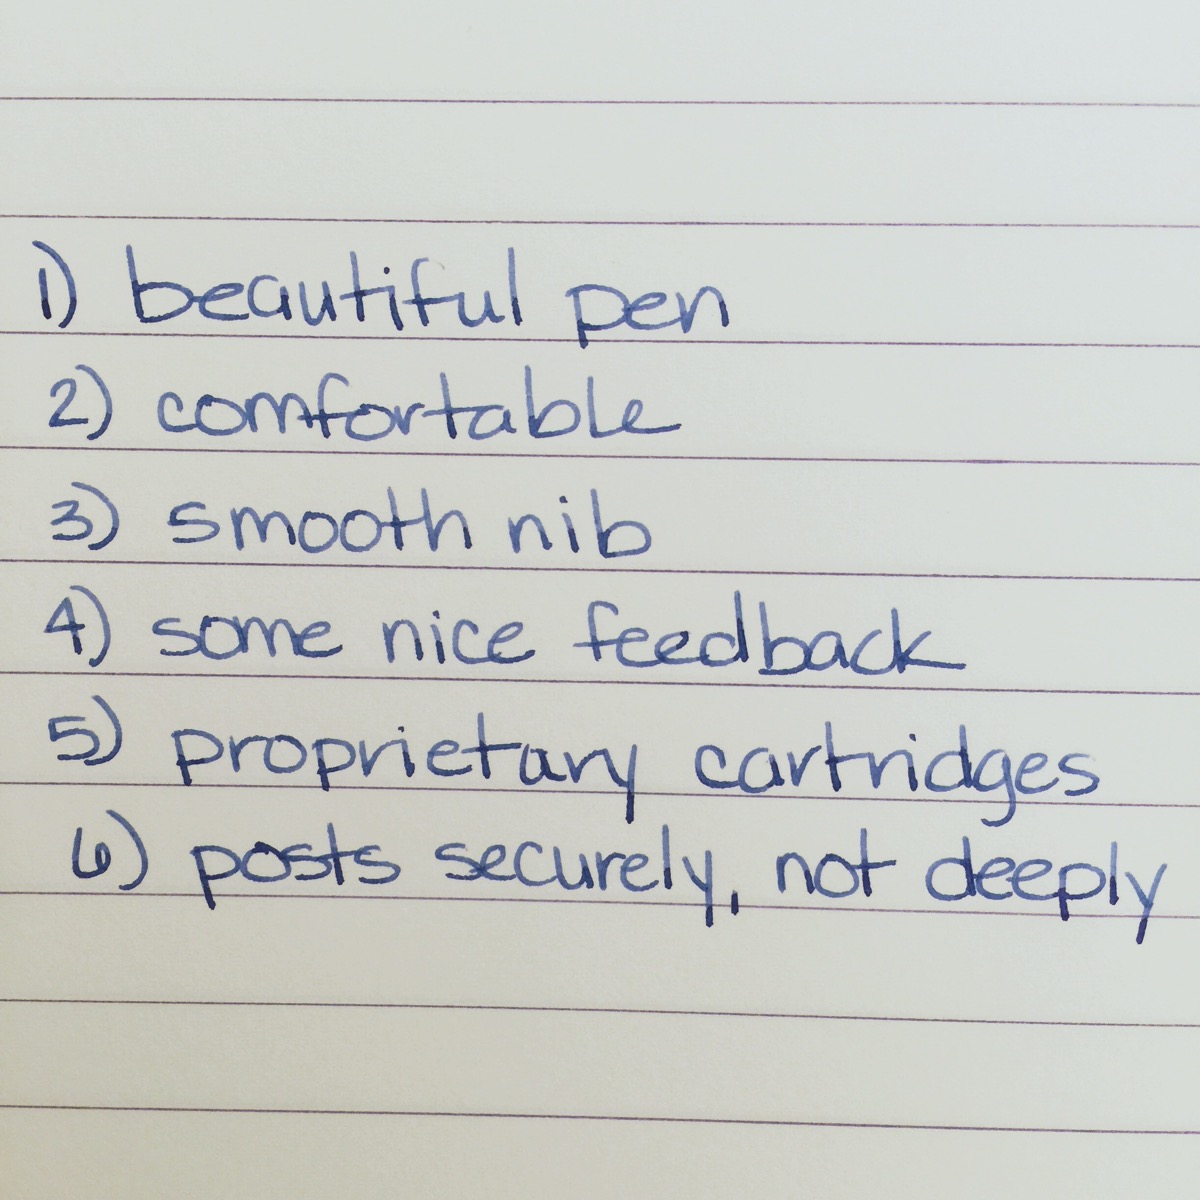 1) beautiful pen
2) comfortable
3) smooth nib
4) some nice feedback
5) proprietary cartridges
6) posts securely, not deeply